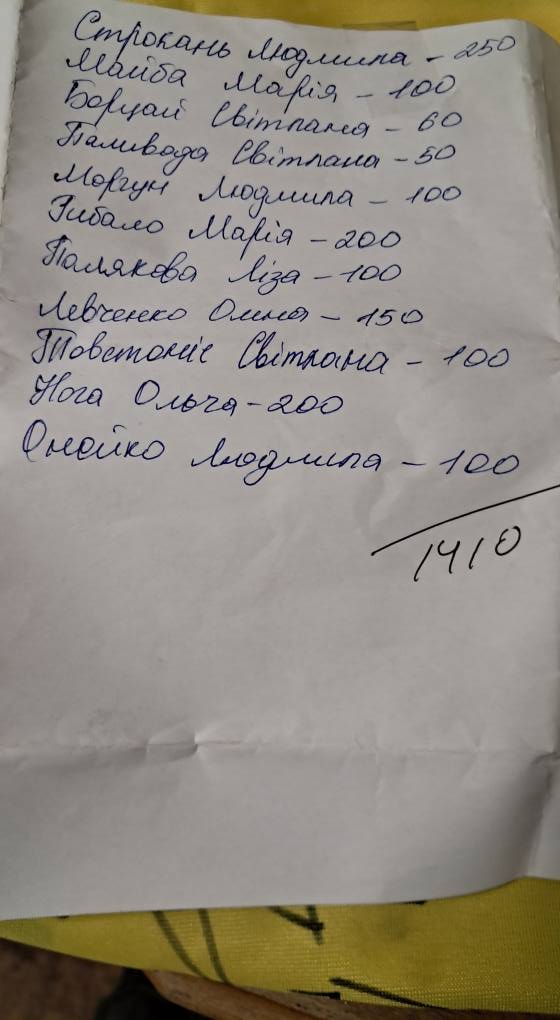 Строкань Людмила - 250
Майба Марія - 100
Борцай Світлана - 60
Паливода Світлана - 50
Моргун Людмила - 100
Рибало Марія - 200
Полякова Ліза - 100
Левченко Олена - 150
Товстоніс Світлана - 100
Нога Ольга - 200
Онойко Людмила - 100
1410